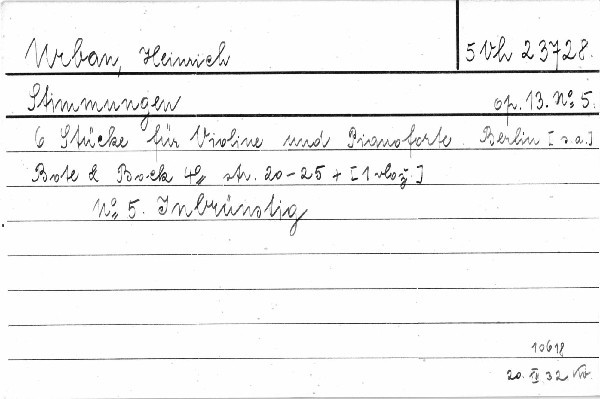 Urban, Heinrich 5 Vh 23728.
Stimmungen op. 13. No 5.
6 Stücke für Violine und Pianoforte. Berlin [s.a.]
Bote & Bock 4° str. 20-25 + [1 vlož.]
No 5. Inbrünstig
10618
20. IV 32